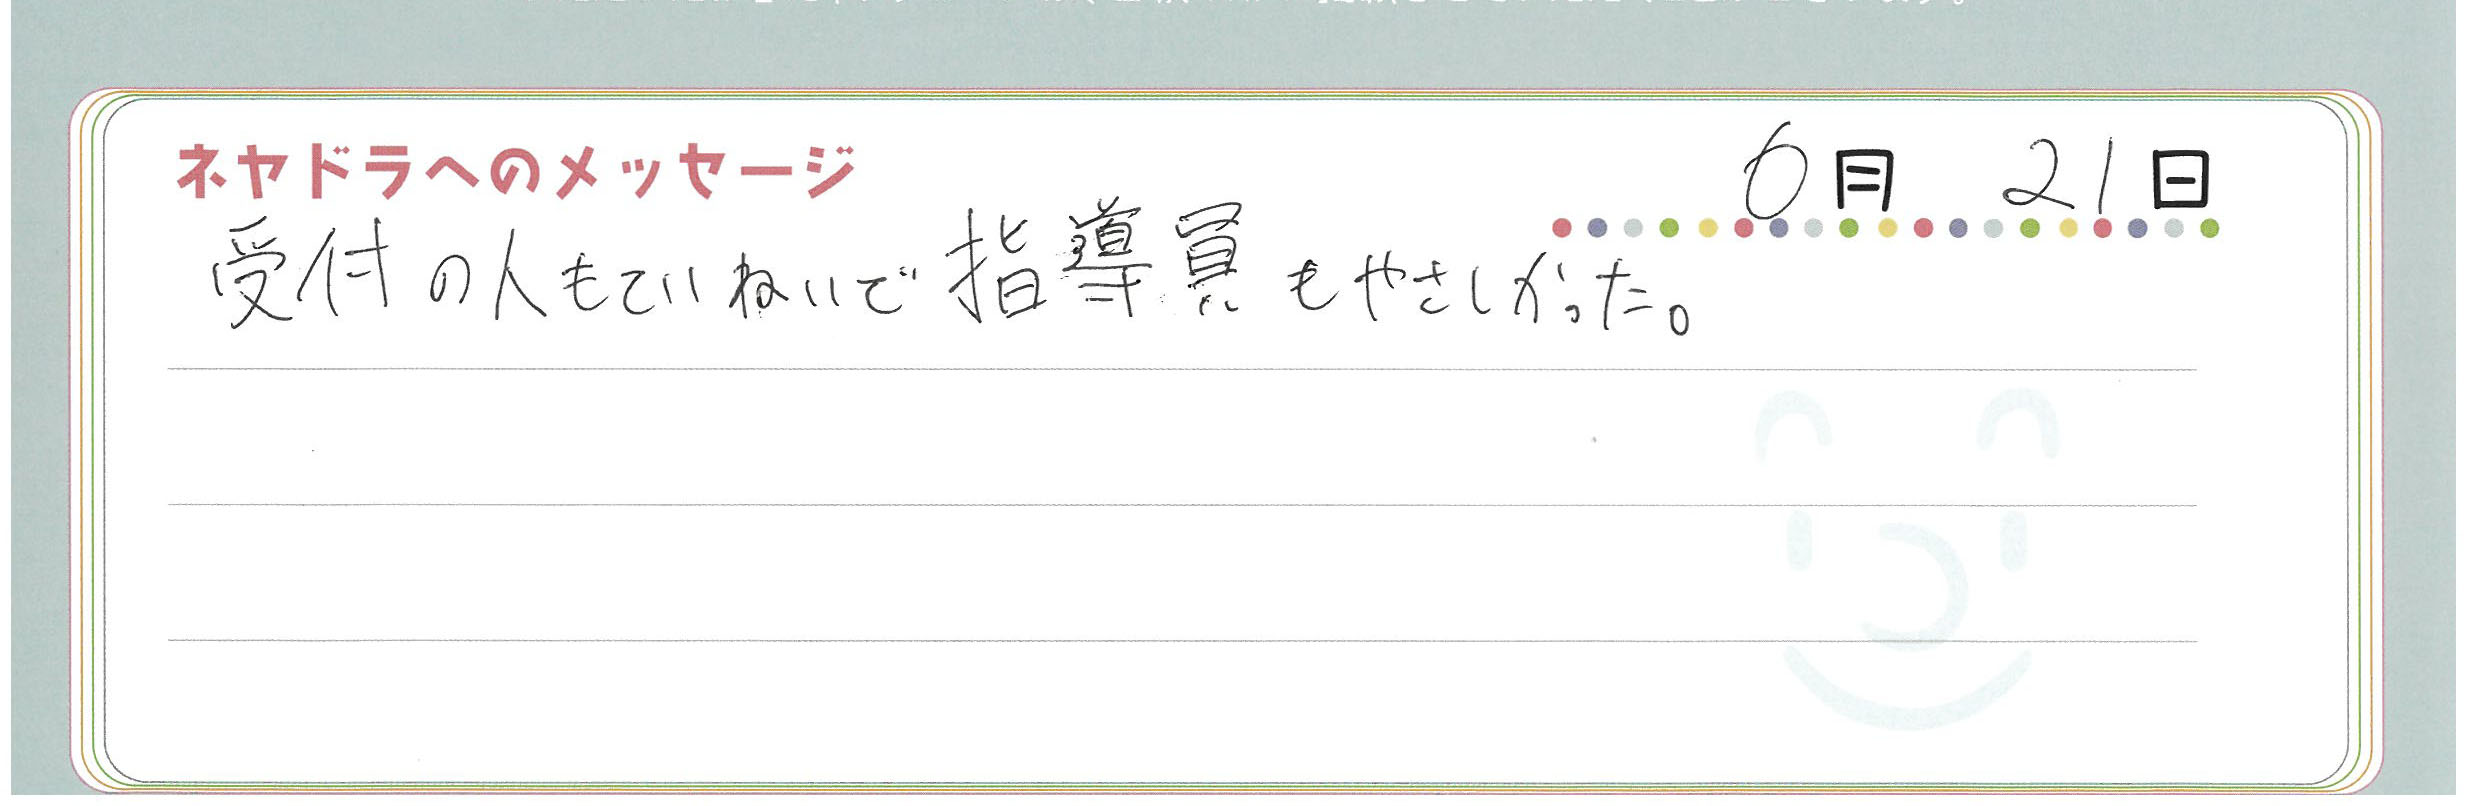 ネヤドラへのメッセージ
6月 21日
受付の人もていねいで指導員もやさしかった。